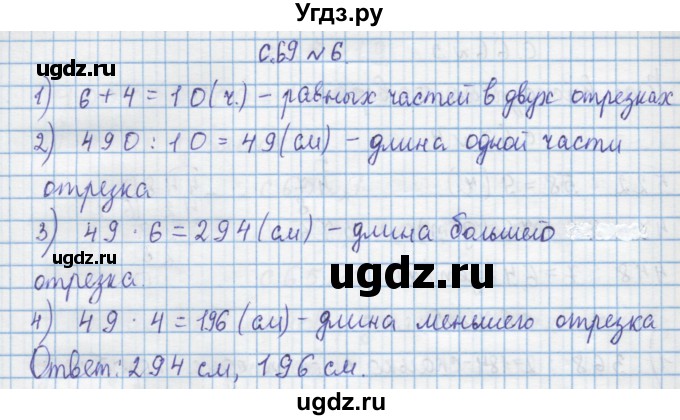 Угдз.ру
с.69 №6.
1) 6+4=10(ч.) – равных частей в двух отрезках
2) 490:10=49(см) – длина одной части
отрезка
3) 49·6=294(см) – длина большего
отрезка.
4) 49·4=196(см) – длина меньшего отрезка
Ответ: 294 см, 196 см.
ugdz.ru
ugdz.ru
ugdz.ru
ugdz.ru
ugdz.ru
ugdz.ru
ugdz.ru
Угдз.ру